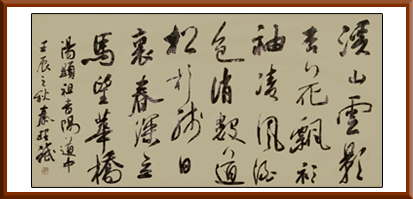 溪山雲影
杏花飄衫
袖凌風酒
色消數道
松杉殘日
裏春深立
馬望華橋
湯顯祖青陽道中
壬辰之秋秦